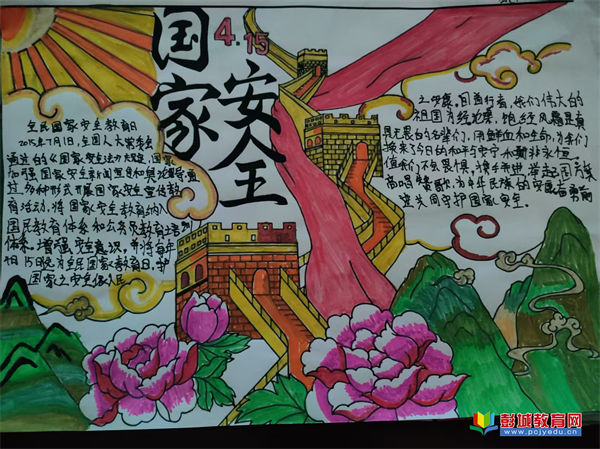 国家
4.15
安全
全民国家安全教育日
2015年7月1日,全国人大常委会
通过的《国家安全法》
加强国家安全新闻宣传和舆论引导,通
过多种形式开展国家安全宣传教
育活动,将国家安全教育纳入
国民教育体系和公务员教育培训
体系,增强安全意识,并将每年
4月15日定为全民国家教育日
国家之安全系人民
们伟大的
祖国历经沧桑,饱经风霜是真
的名辈们,用鲜血和生命,为我们
换来了今日的和平与安宁和
值我们不句畏惧,携手
高唱赞歌,为中华民族的
共同守护国家安全。
彭城教育网
www.pcjyedu.cn